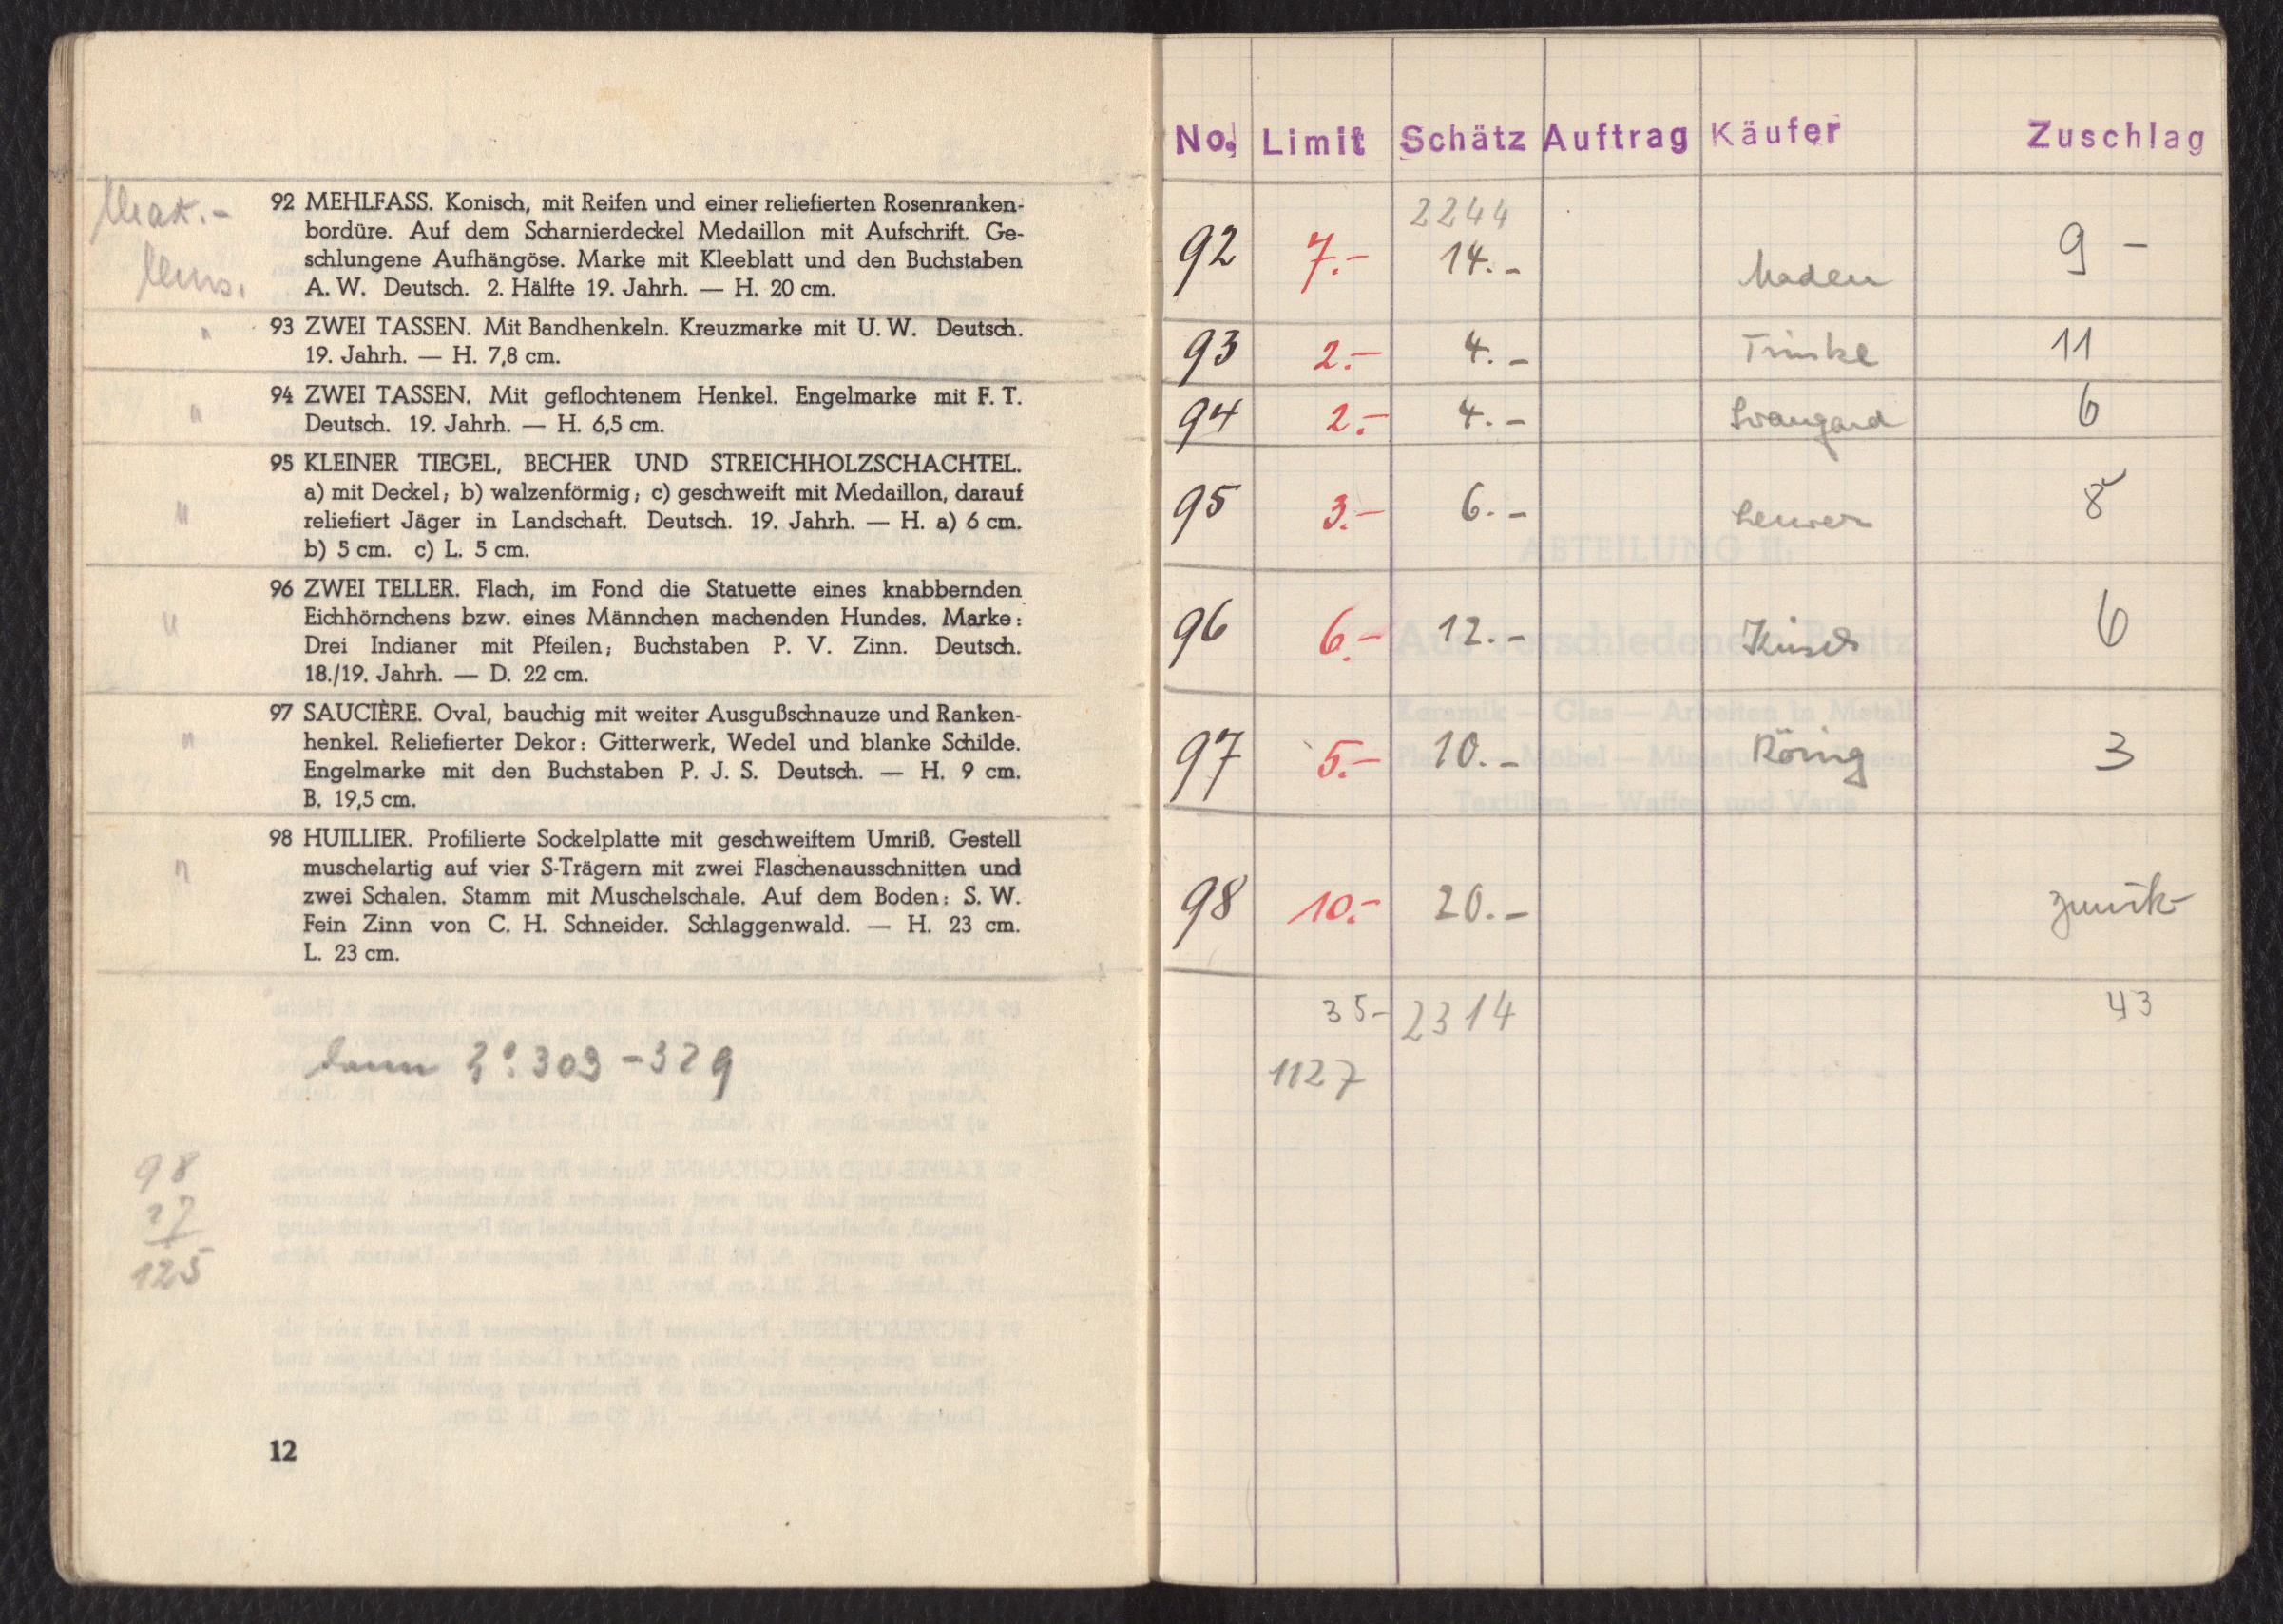 92 MEHLFASS. Konisch, mit Reifen und einer reliefierten Rosenranken-
bordüre. Auf dem Scharnierdeckel Medaillon mit Aufschrift. Ge-
schlungene Aufhängöse. Marke mit Kleeblatt und den Buchstaben
A. W. Deutsch. 2. Hälfte 19. Jahrh. — H. 20 cm.
93 ZWEI TASSEN. Mit Bandhenkeln. Kreuzmarke mit U. W. Deutsch.
19. Jahrh. — H. 7,8 cm.
94 ZWEI TASSEN. Mit geflochtenem Henkel. Engelmarke mit F. T.
Deutsch. 19. Jahrh. — H. 6,5 cm.
95 KLEINER TIEGEL, BECHER UND STREICHHOLZSCHACHTEL.
a) mit Deckel; b) walzenförmig; c) geschweift mit Medaillon, darauf
reliefiert Jäger in Landschaft. Deutsch. 19. Jahrh. — H. a) 6 cm.
b) 5 cm. c) L. 5 cm.
96 ZWEI TELLER. Flach, im Fond die Statuette eines knabbernden
Eichhörnchens bzw. eines Männchen machenden Hundes. Marke:
Drei Indianer mit Pfeilen; Buchstaben P. V. Zinn. Deutsch.
18./19. Jahrh. — D. 22 cm.
97 SAUCIÈRE. Oval, bauchig mit weiter Ausgußschnauze und Ranken-
henkel. Reliefierter Dekor: Gitterwerk, Wedel und blanke Schilde.
Engelmarke mit den Buchstaben P. J. S. Deutsch. — H. 9 cm.
B. 19,5 cm.
98 HUILLIER. Profilierte Sockelplatte mit geschweiftem Umriß. Gestell
muschelartig auf vier S-Trägern mit zwei Flaschenausschnitten und
zwei Schalen. Stamm mit Muschelschale. Auf dem Boden: S. W.
Fein Zinn von C. H. Schneider. Schlaggenwald. — H. 23 cm.
L. 23 cm.
dann 303 - 329
98
27
125
12
No. Limit Schätz Auftrag Käufer Zuschlag
2244
92 7.- 14.- Maden 9 -
93 2.- 4.- 11
94 2.- 4.- 6
95 3.- 6.- 8
96 6.- 12.- 6
97 5.- 10.- Röing 3
98 10.- 20.- zurück
35- 2314 43
1127
ABTEILUNG II:
Aus verschiedenem Besitz
Keramik — Glas — Arbeiten in Metall
Textilien — Waffen und Varia